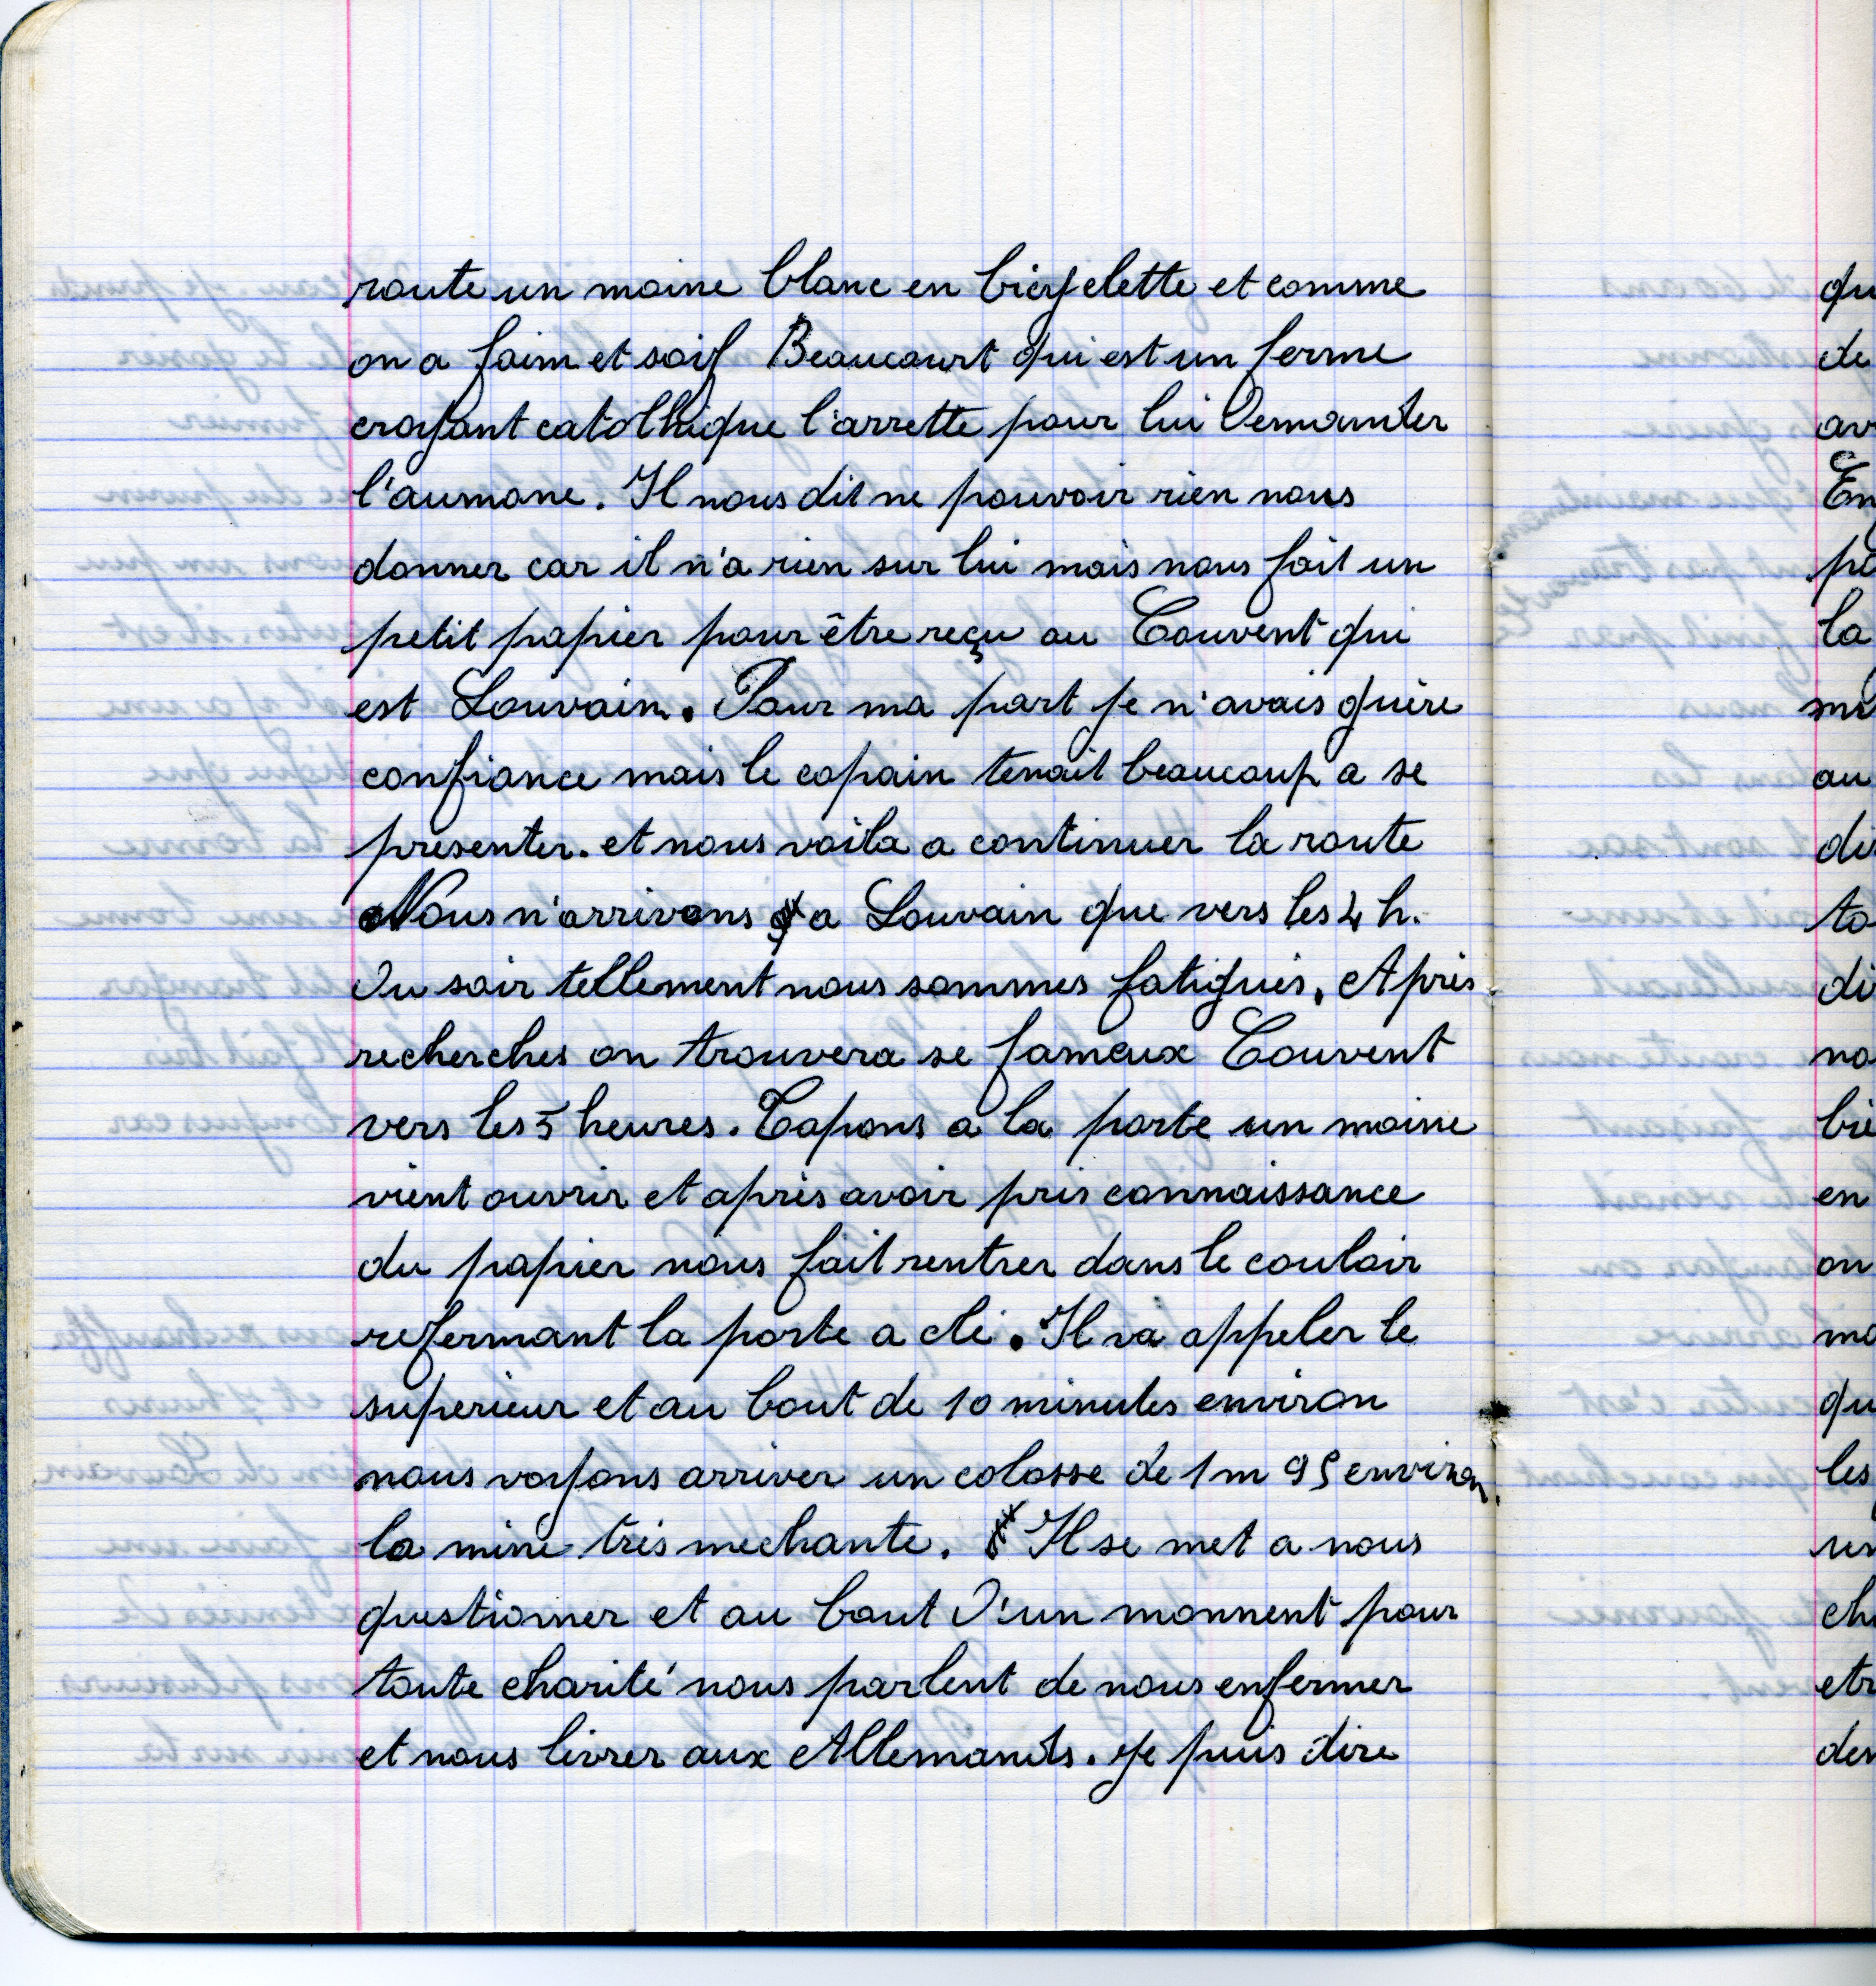 route un moine blanc en bicyclette et comme
on a faim et soif Beaucourt qui est un ferme
croyant catolhique l'arrette pour lui demander
l'aumone. Il nous dit ne pouvoir rien nous
donner car il n'a rien sur lui mais nous fait un
petit papier pour être reçu au Couvent qui
est Louvain. Pour ma part je n'avais guère
confiance mais le copain tenait beaucoup a se
presenter. et nous voila a continuer la route
Nous n'arrivons a Louvain que vers les 4 h.
du soir tellement nous sommes fatigués. Après
recherches on trouvera se fameux Couvent
vers les 5 heures. Tapons a la porte un moine
vient ouvrir et après avoir pris connaissance
du papier nous fait rentrer dans le couloir
refermant la porte a clé. Il va appeler le
superieur et au bout de 10 minutes environ
nous voyons arriver un colosse de 1m 95 environ.
la mine très mechante. Il se met a nous
questionner et au bout d'un monnent pour
toute charité nous parlent de nous enfermer
et nous livrer aux Allemands. Je puis dire
qu
de
av
En
pe
la
au
du
to
di
no
bie
en
on
mo
qu
les
un
che
etr
der